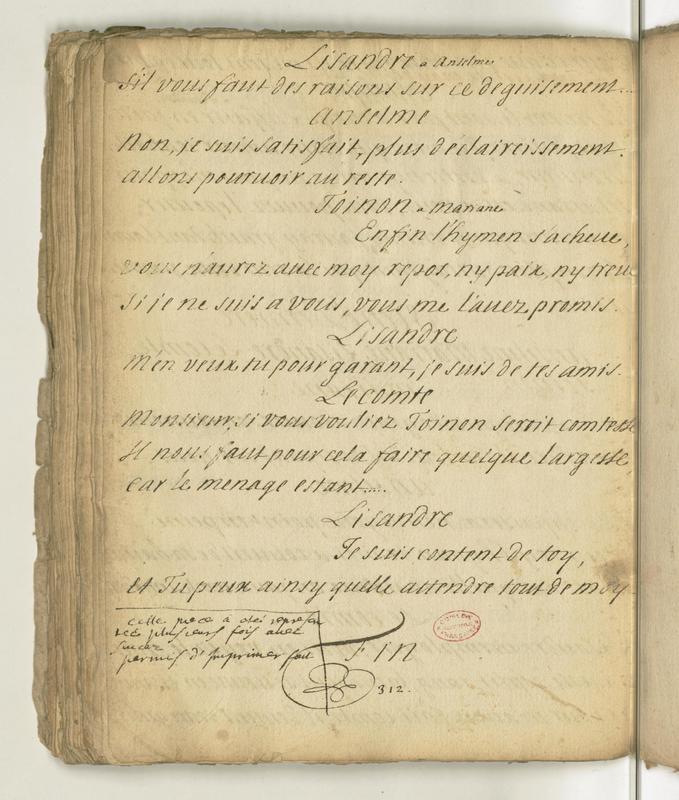 Lisandre a Anselme
S'il vous faut des raisons sur ce deguisement...
Anselme
Non, je suis satisfait, plus d'eclaircissement.
allons pourvoir au reste.
Toinon a mariane
Enfin l'hymen s'acheue,
vous n'aurez auec moy repos, ny paix, ny treue
si je ne suis a vous, vous me l'auez promis.
Lisandre
m'en veux tu pour garant, je suis de tes amis.
Le comte
Monsieur, si vous vouliez Toinon seroit comtesse
Il nous faut pour cela faire quelque largesse,
car le menage estant....
Lisandre
Je suis content de toy,
et Tu peux ainsy qu'elle attendre tout de moy.
cette piece a eté represen
tée plusieurs fois avec
succez
permis d'Imprimer fait
Fin
312.
COMÉDIE FRANÇAISE